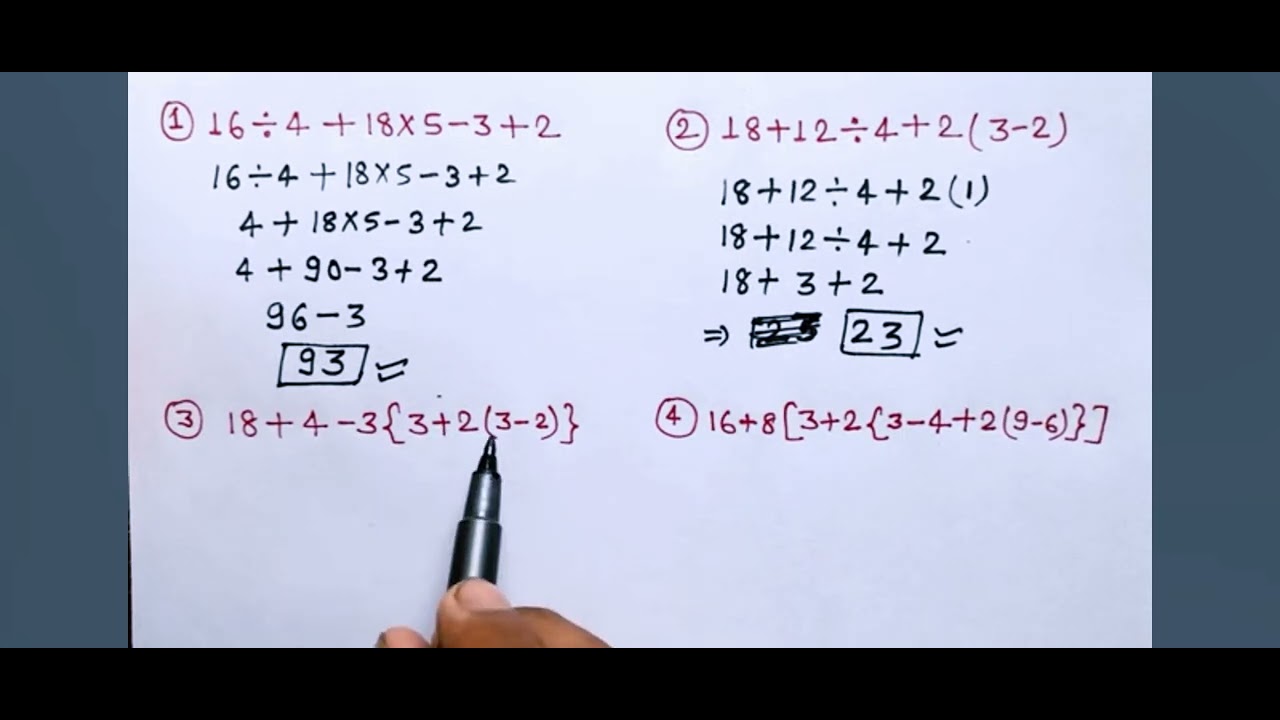 ① 16÷4+18×5-3+2
16÷4+18×5-3+2
4+18×5-3+2
4+90-3+2
96-3
93
② 18+12÷4+2(3-2)
18+12÷4+2(1)
18+12÷4+2
18+3+2
⇒ 23
③ 18+4-3{3+2(3-2)}
④ 16+8[3+2{3-4+2(9-6)}]